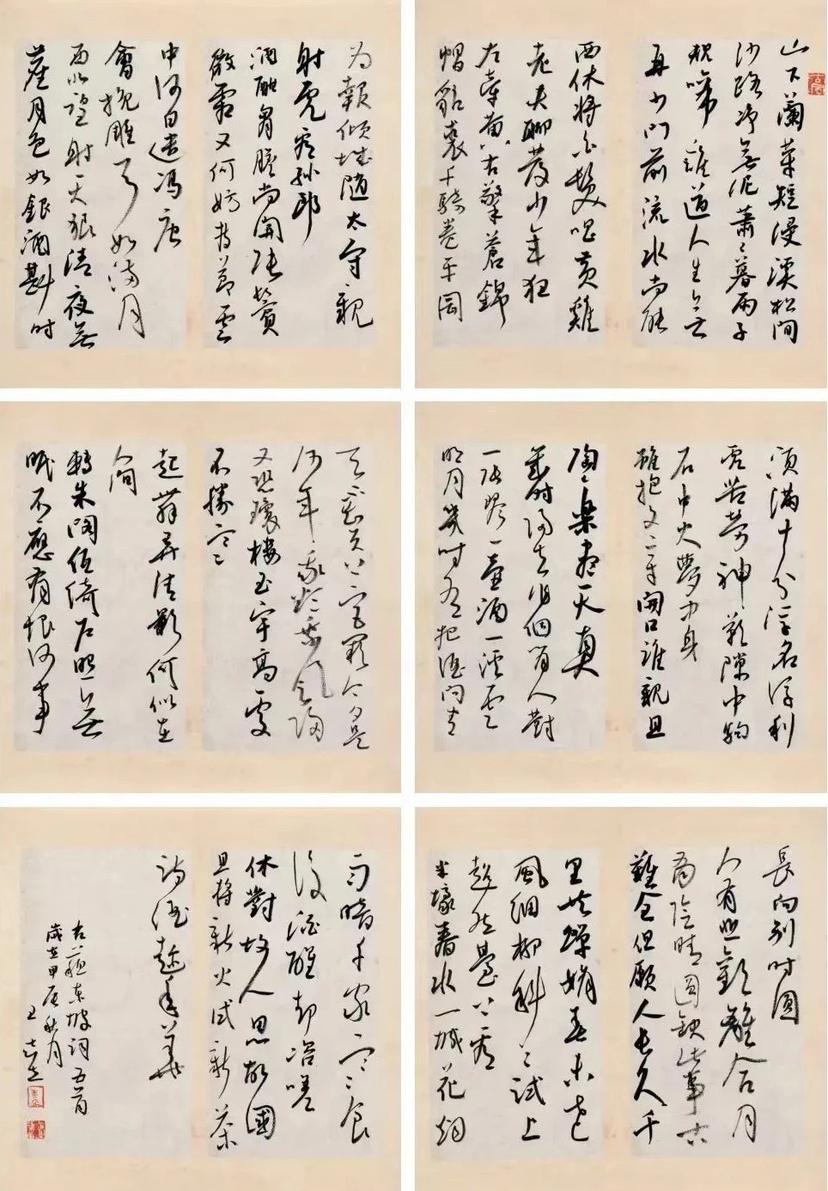 山下蘭芽短浸溪松間
沙路净無泥蕭蕭暮雨子
規啼誰道人生無
再少門前流水尚能
西休將白髮唱黃雞
老夫聊發少年狂
左牽黃右擎蒼錦
帽貂裘千騎卷平岡
為報傾城隨太守親
射虎看孫郎
酒酣胸膽尚開張鬢
微霜又何妨持節雲
中何日遣馮唐
會挽雕弓如滿月
西北望射天狼清夜無
塵月色如銀酒斟時
須滿十分浮名浮利
虛苦勞神歎隙中駒
石中火夢中身
雖抱文章開口誰親且
陶陶樂盡天真
幾時歸去作個閑人對
一張琴一壺酒一溪雲
明月幾時有把酒問青
天不知天上宮闕今夕是
何年我欲乘風歸去
又恐瓊樓玉宇高處
不勝寒
起舞弄清影何似在
人間
轉朱閣低綺戶照無
眠不應有恨何事
長向別時圓
人有悲歡離合月
有陰晴圓缺此事古
難全但願人長久千
里共嬋娟春未老
風細柳斜斜試上
超然臺上看
半壕春水一城花烟
雨暗千家寒食
後酒醒卻咨嗟
休對故人思故國
且將新火試新茶
詩酒趁年華
右蘇東坡詞五首
歲在甲辰秋月
王